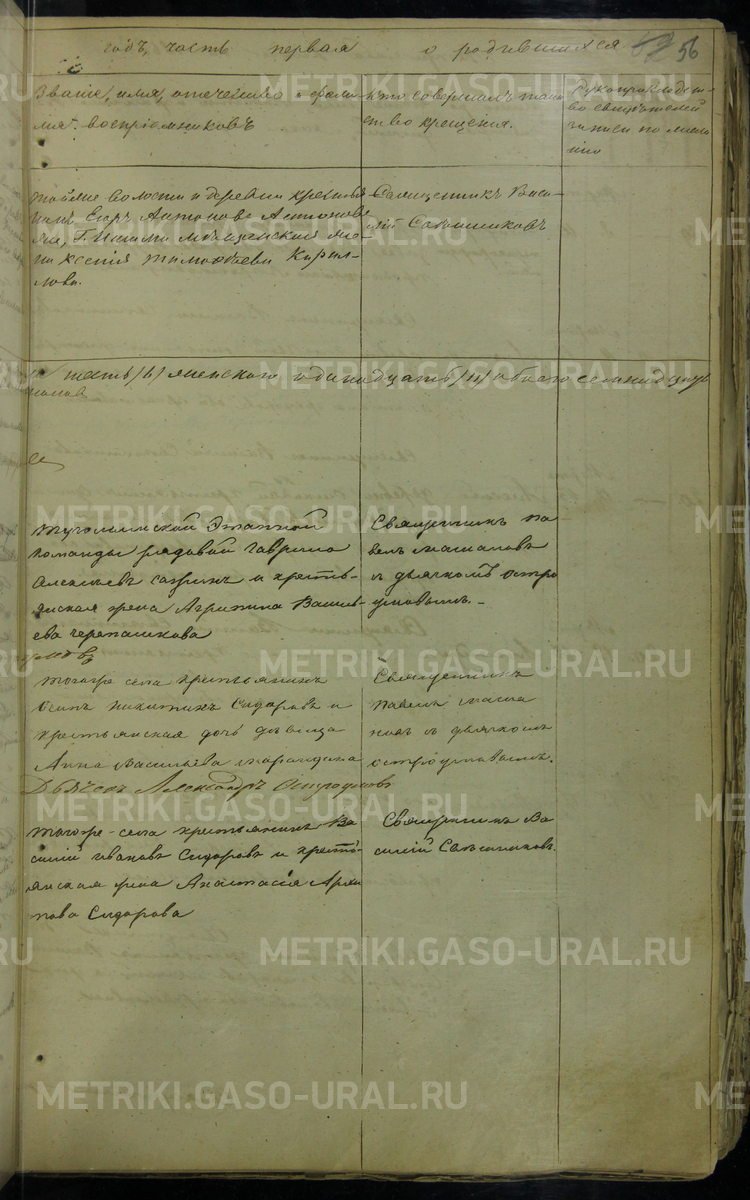 годъ, часть первая о родившихся 56
Званіе, имя, отечество и фами-
лія воспріемниковъ
Кто совершалъ таин-
ство крещения.
Рукоприкладст-
во свидѣтелей
записи по жела-
нію
волости и деревни крестья-
нинъ Егоръ Антоновъ
Г. Ишима мѣщанская же-
на Ксенія Тимофѣева Кирил-
лова.
Священникъ Васи-
лій
шесть /6/ женского одинадцать /11/ обоего семнадцать
Тугулымской Этапной
команды рядовой Гаврило
Алексѣевъ и кресть-
янская жена Агрипина Василь-
ева Черепашкова
Священникъ Па-
велъ
и дьячкомъ Остро-
умовымъ.
Тогоже села крестьянинъ
Осипъ Никитинъ Сидоровъ и
крестьянская дочь дѣвица
Анна Васильева
Священникъ
Павелъ
и дьячкомъ
Остроумовымъ.
Дьячекъ Александръ Остроумовъ
Тогоже села крестьянинъ Ва-
силій Ивановъ Сидоровъ и кресть-
янская жена Анастасія Архи-
пова Сидорова
Священникъ Ва-
силій
METRIKI.GASO-URAL.RU